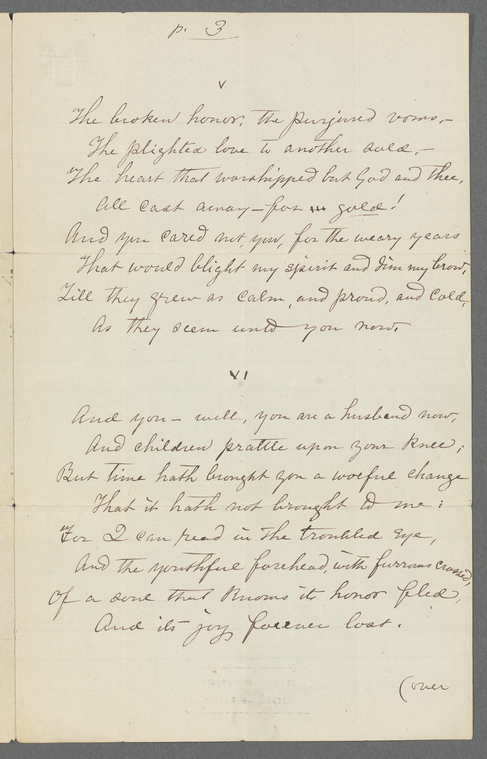 p. 3
V
The broken honor, the purjured vows,—
The plighted love to another sold,—
The heart that worshipped but God and thee,
All cast away—for gold!
And you cared not, you, for the weary years
That would blight my spirit and dim my brow,
Till they grew as calm, and proud, and cold,
As they seem unto you now.
VI
And you— well, you are a husband now,
And children prattle upon your knee;
But time hath brought you a woeful change
That it hath not brought to me:
For I can read in the troubled eye,
And the youthful forehead, with furrows crossed,
Of a soul that knows its honor fled,
And its joy forever lost.
(over